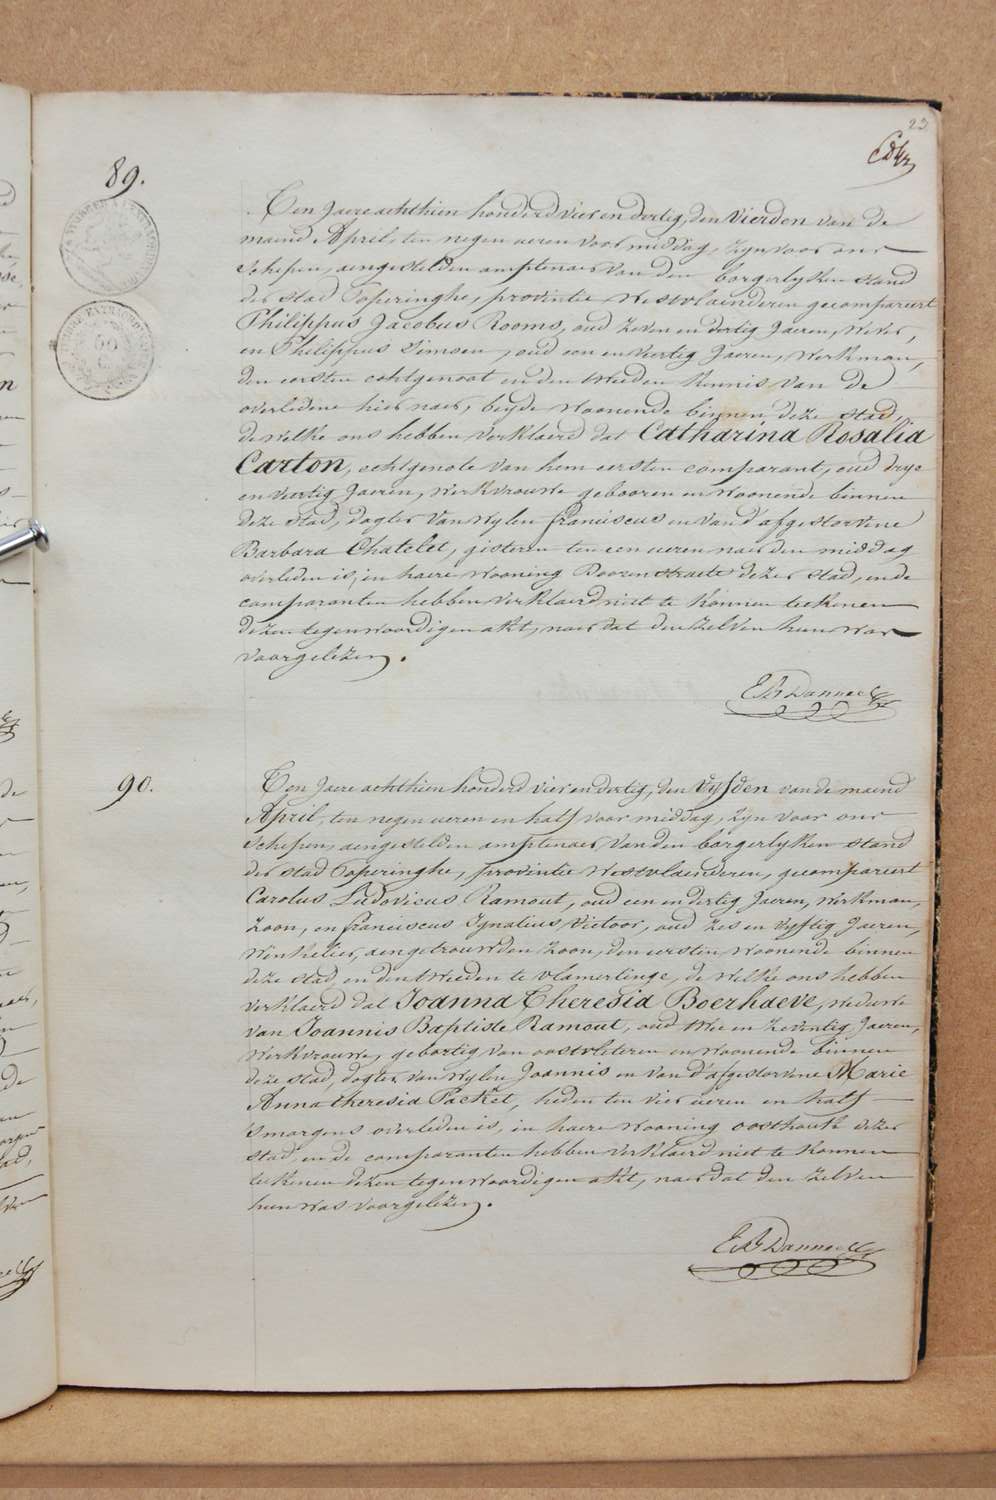 23
89.
Ten Jaere achthien honderd vier en dertig, den vierden van de
maend April, ten negen ueren voor middag, zyn voor ons
schepen, aengestelden amptenaer van den borgerlyken stand
der stad Poperinghe, provintie Westvlaenderen gecompareert
Philippus Jacobus Rooms, oud zeven en dertig Jaeren, wever,
en Philippus Simoen, oud een en veertig Jaeren, werkman,
den eersten echtgenoot en den tweeden kennis van de
overledene hier naer, beyde woonende binnen deze stad,
de welke ons hebben verklaerd dat Catharina Rosalia
Carton, echtgenote van hem eersten comparant, oud drye
en veertig Jaeren, werkvrouwe gebooren en woonende binnen
deze stad, dogter van wylen franciscus en van d'afgestorvene
Barbara Chatelet, gisteren ten een ueren naer den middag
overleden is, in haere wooning Boozenstraete dezer stad, en de
comparanten hebben verklaerd niet te konnen teekenen
dezen tegenwoordigen akt, naer dat den zelven hun was
voorgelezen.
90.
Ten Jaere achthien honderd vier en dertig, den vyfden van de maend
April, ten negen ueren en half voor middag, zyn voor ons
schepen, aengestelden amptenaer van den borgerlyken stand
der stad Poperinghe, provintie Westvlaenderen, gecompareert
Carolus Ludovicus Ramout, oud een en dertig Jaeren, werkman,
zoon, en franciscus Ignatius Victoor, oud zes en vyftig Jaeren,
winkelier, aengetrouwden zoon, den eersten woonende binnen
deze stad, en den tweeden te vlamertinge, de welke ons hebben
verklaerd dat Joanna Theresia Boerhaeve, weduwe
van Joannis Baptiste Ramout, oud twee en zeventig Jaeren,
werkvrouwe, gebortig van oostvleteren en woonende binnen
deze stad, dogter van wylen Joannis en van d'afgestorvene Marie
Anna theresia Packet, heden ten vier ueren en half
's morgens overleden is, in haere wooning oosthoutk dezer
stad en de comparanten hebben verklaerd niet te konnen
teekenen dezen tegenwoordigen akt, naer dat den zelven
hun was voorgelezen.